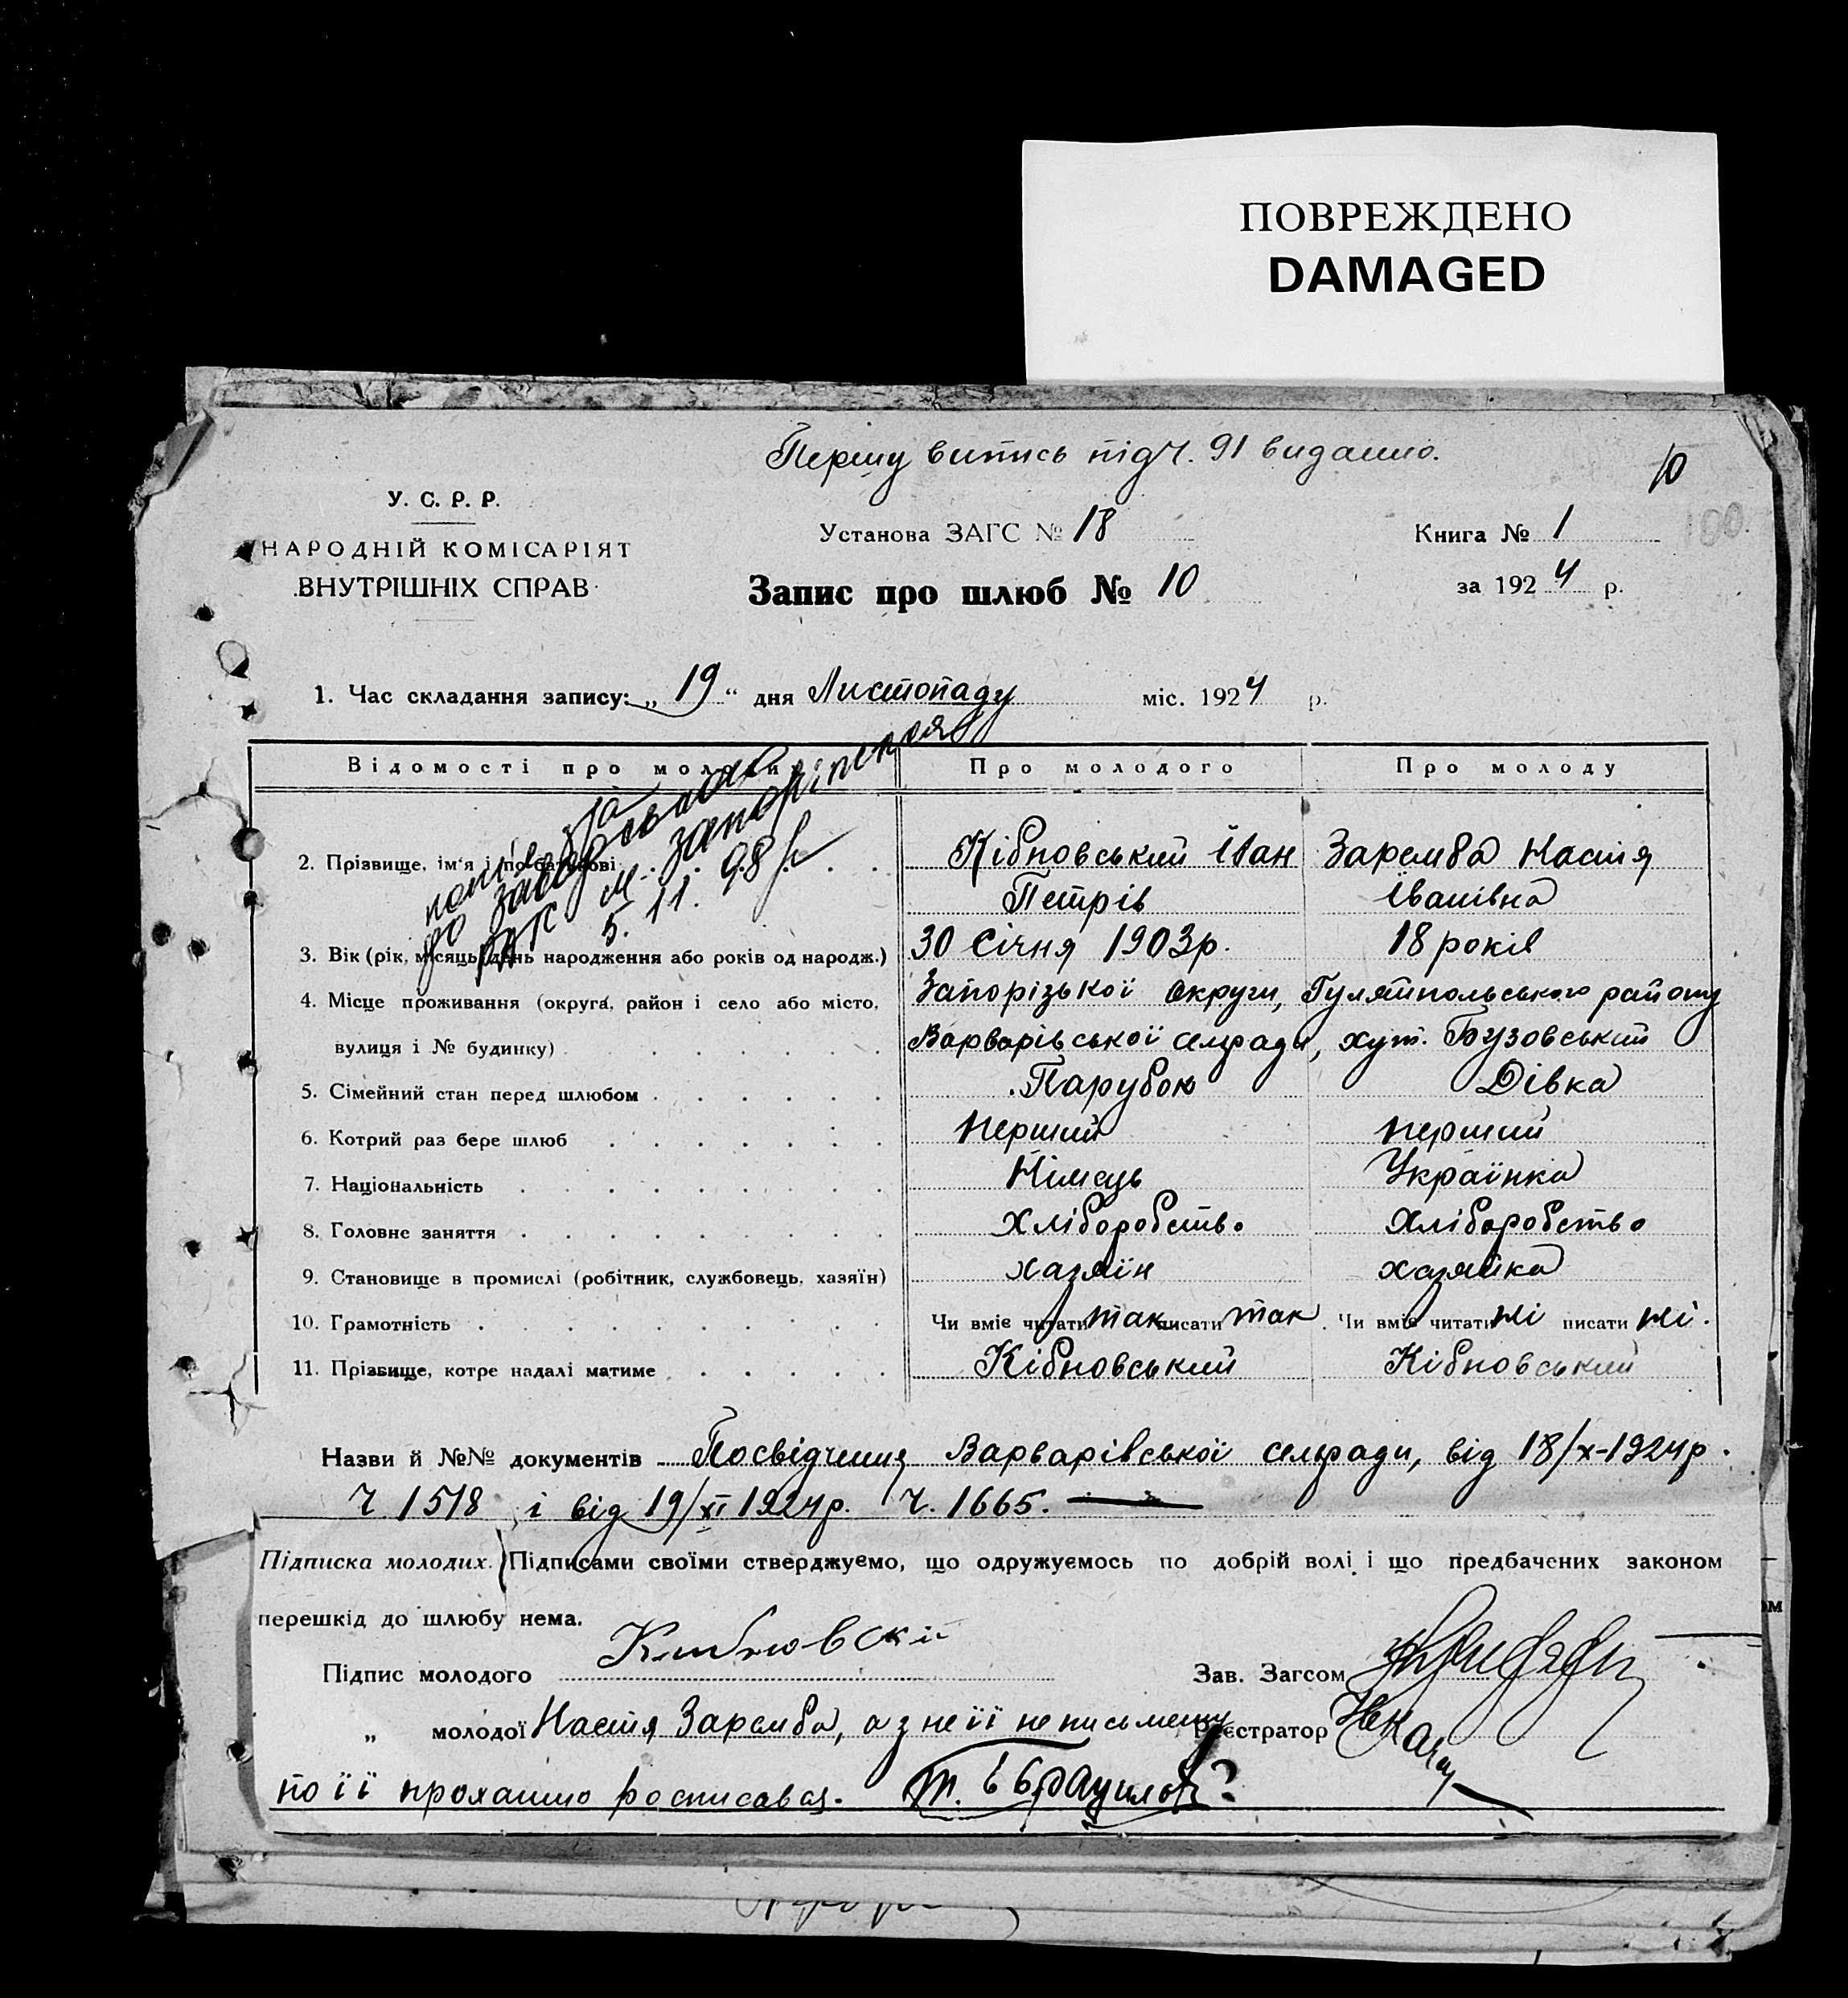 ПОВРЕЖДЕНО
DAMAGED
Першу витись під Ч. 91 видано.
10
100.
У. С. Р. Р.
НАРОДНІЙ КОМІСАРІЯТ
ВНУТРІШНІХ СПРАВ
Установа ЗАГС № 18
Книга № 1
Запис про шлюб № 10
за 1924 р.
1. Час складання запису: „ 19 “ дня Листопаду міс. 1924 р.
Відомості про молодих Про молодого Про молоду
м. Запоріжжя
5. 11. 98
2. Прізвище, ім'я і по батькові Кібновський Іван Заремба Настя
Петрів Іванівна
3. Вік (рік, місяць, день народження або років од народж.) 30 Січня 1903р. 18 років
4. Місце проживання (округа, район і село або місто, Запорізької округи, Гуляйпольського району
вулиця і № будинку) Варварівської сельради, хут. Бузовський
5. Сімейний стан перед шлюбом Парубок Дівка
6. Котрий раз бере шлюб перший перший
7. Національність Німець Українка
8. Головне заняття Хліборобство Хліборобство
9. Становище в промислі (робітник, службовець, хазяїн) хазяїн хазяйка
10. Грамотність Чи вміє читати так писати так Чи вміє читати ні писати ні.
11. Прізвище, котре надалі матиме Кібновський Кібновський
Назви й №№ документів Посвідчення Варварівської сельради, від 18/X-1924р.
Ч. 1518 і від 19/XI 1924р. Ч. 1665.
Підписка молодих. Підписами своїми стверджуємо, що одружуємось по добрій волі і що предбачених законом
перешкід до шлюбу нема.
Підпис молодого Кибновскй Зав. Загсом
„ молодої Настя Заремба, а з не її неписьмену Реєстратор
по її проханню росписався.